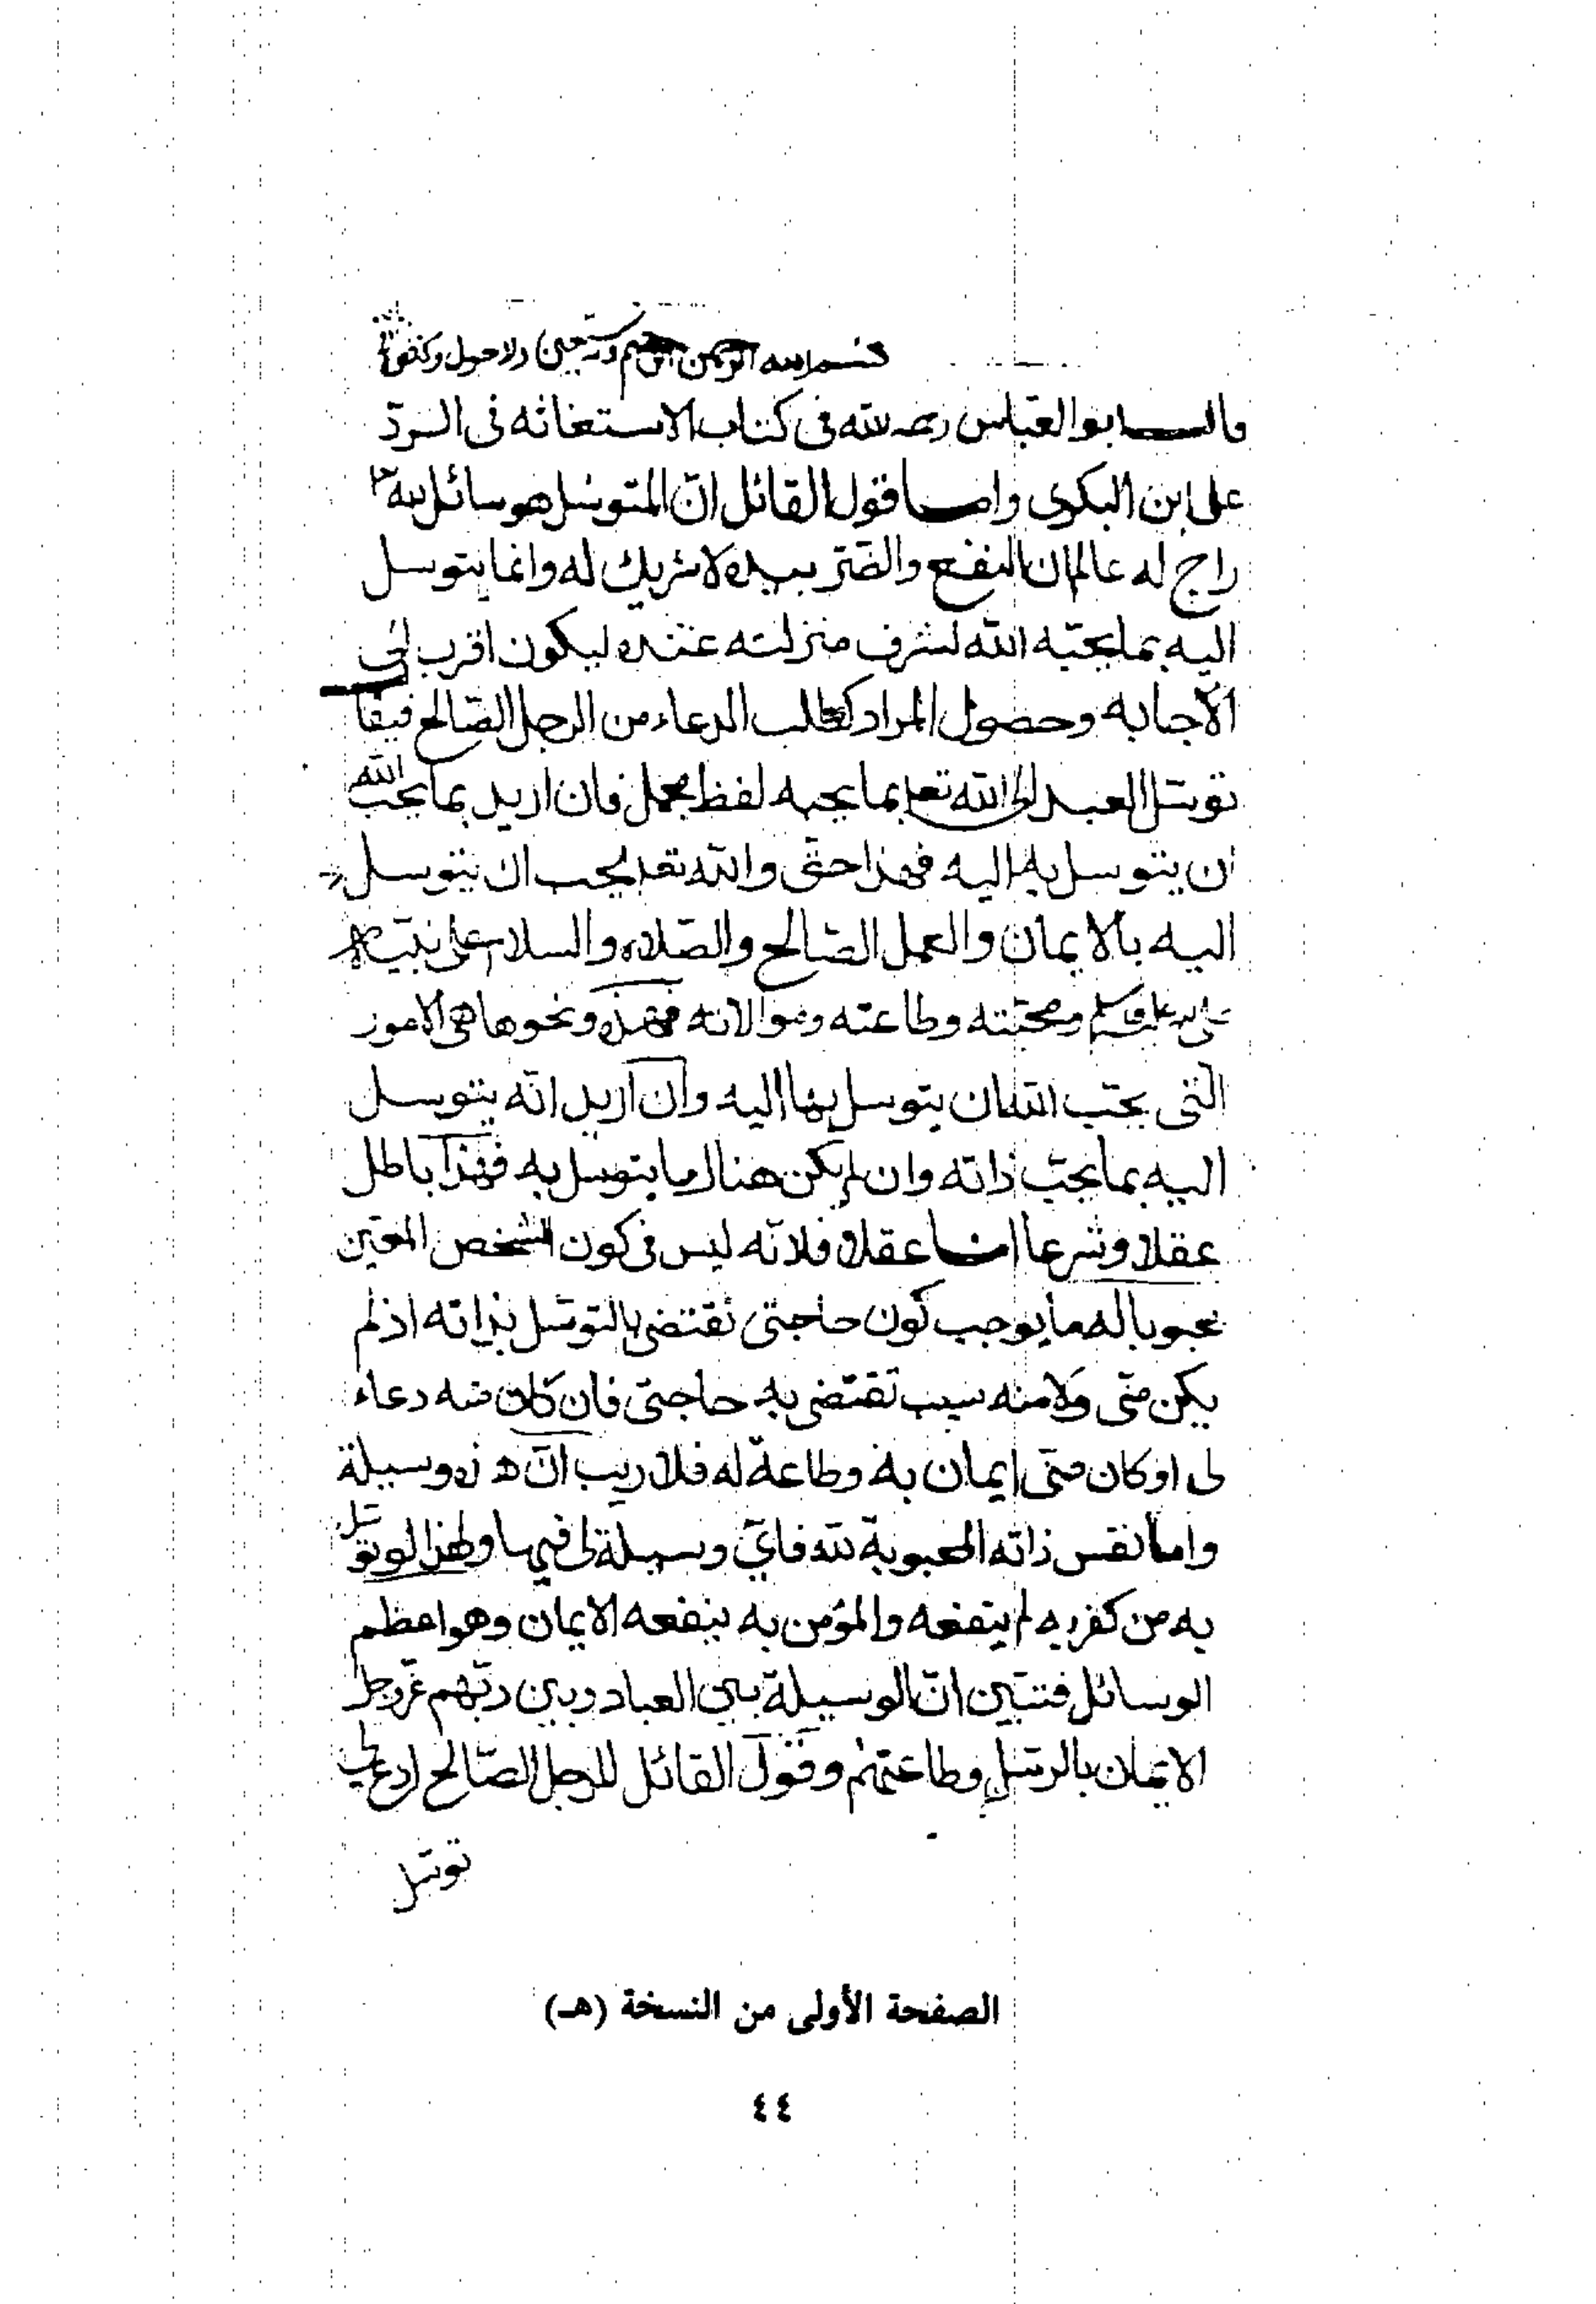 بسم الله الرحمن الرحيم وبه نستعين ولا حول ولا قوة
قال ابو العباس رحمه الله فى كتاب الاستغاثه فى الردّ
على ابن البكرى واما قول القائل انّ المتوسّل هو سائل لله
راج له عالم ان النفع والضّرّ بيده لا شريك له وانما يتوسل
اليه بما يحبّه الله لشرف منزلته عنده ليكون اقرب الى
الاجابه وحصول المراد كطلب الدعاء من الرجل الصّالح فيقال
توسّل العبد الى الله تعا بما يحبه لفظ مجمل فان اريد بما يحبّ الله
ان يتوسل به اليه فهذا حقّ والله تعا يحب ان يتوسل
اليه بالايمان والعمل الصّالح والصّلاه والسلام على نبيّه
صلى الله عليه وسلم ومحبّته وطاعته وموالاته فهذه ونحوها هى الامور
الّتى يحبّ الله ان يتوسل بها اليه وان اريد انّه يتوسل
اليه بما يحبّ ذاته وان لم يكن هناك ما يتوسل به فهذا باطل
عقلا وشرعا اما عقلا فلانّه ليس فى كون الشخص المعين
محبوبا له ما يوجب كون حاجتى تقتضى بالتوسّل بذاته اذ لم
يكن منّى ولا منه سبب تقتضى به حاجتى فان كان منه دعاء
لى او كان منّى ايمان به وطاعة له فلا ريب انّ هذه وسيلة
واما نفس ذاته المحبوبة لله فاىّ وسيلة لى فيها ولهذا لو توسّل
به من كفر به لم ينفعه والمؤمن به ينفعه الايمان وهو اعظم
الوسائل فتبيّن انّ الوسيلة بين العباد وبين ربّهم عزّ وجل
الايمان بالرسل وطاعتهم وقول القائل للرجل الصّالح ادع لى
توسّل
الصفحة الأولى من النسخة (هـ)
٤٤